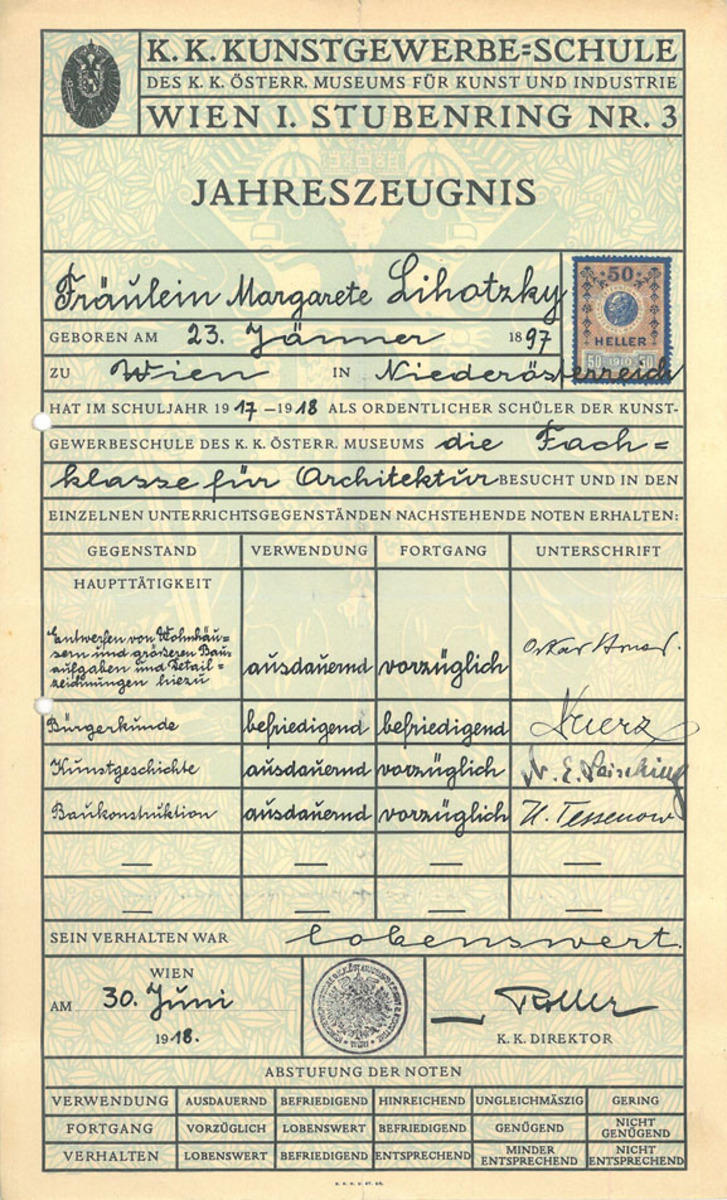 K. K. KUNSTGEWERBE=SCHULE
DES K. K. ÖSTERR. MUSEUMS FÜR KUNST UND INDUSTRIE
WIEN I. STUBENRING NR. 3
JAHRESZEUGNIS
Fräulein Margarete Lihotzky
50
HELLER
50 1910 50
GEBOREN AM 23. Jänner 1897
ZU Wien IN Niederösterreich
HAT IM SCHULJAHR 1917 –1918 ALS ORDENTLICHER SCHÜLER DER KUNST-
GEWERBESCHULE DES K. K. ÖSTERR. MUSEUMS die Fach=
klasse für Architektur BESUCHT UND IN DEN
EINZELNEN UNTERRICHTSGEGENSTÄNDEN NACHSTEHENDE NOTEN ERHALTEN:
GEGENSTAND VERWENDUNG FORTGANG UNTERSCHRIFT
HAUPTTÄTIGKEIT
Entwerfen von Wohnhäu=
sern und größeren Bau=
aufgaben und Detail=
zeichnungen hiezu ausdauernd vorzüglich Oskar Strnad.
Bürgerkunde befriedigend befriedigend
Kunstgeschichte ausdauernd vorzüglich E. Leisching
Baukonstruktion ausdauernd vorzüglich H. Tessenow
— — — —
— — — —
SEIN VERHALTEN WAR lobenswert.
WIEN
AM 30. Juni
1918.
Roller
K. K. DIREKTOR
ABSTUFUNG DER NOTEN
VERWENDUNG AUSDAUERND BEFRIEDIGEND HINREICHEND UNGLEICHMÄSZIG GERING
FORTGANG VORZÜGLICH LOBENSWERT BEFRIEDIGEND GENÜGEND NICHT GENÜGEND
VERHALTEN LOBENSWERT BEFRIEDIGEND ENTSPRECHEND MINDER ENTSPRECHEND NICHT ENTSPRECHEND